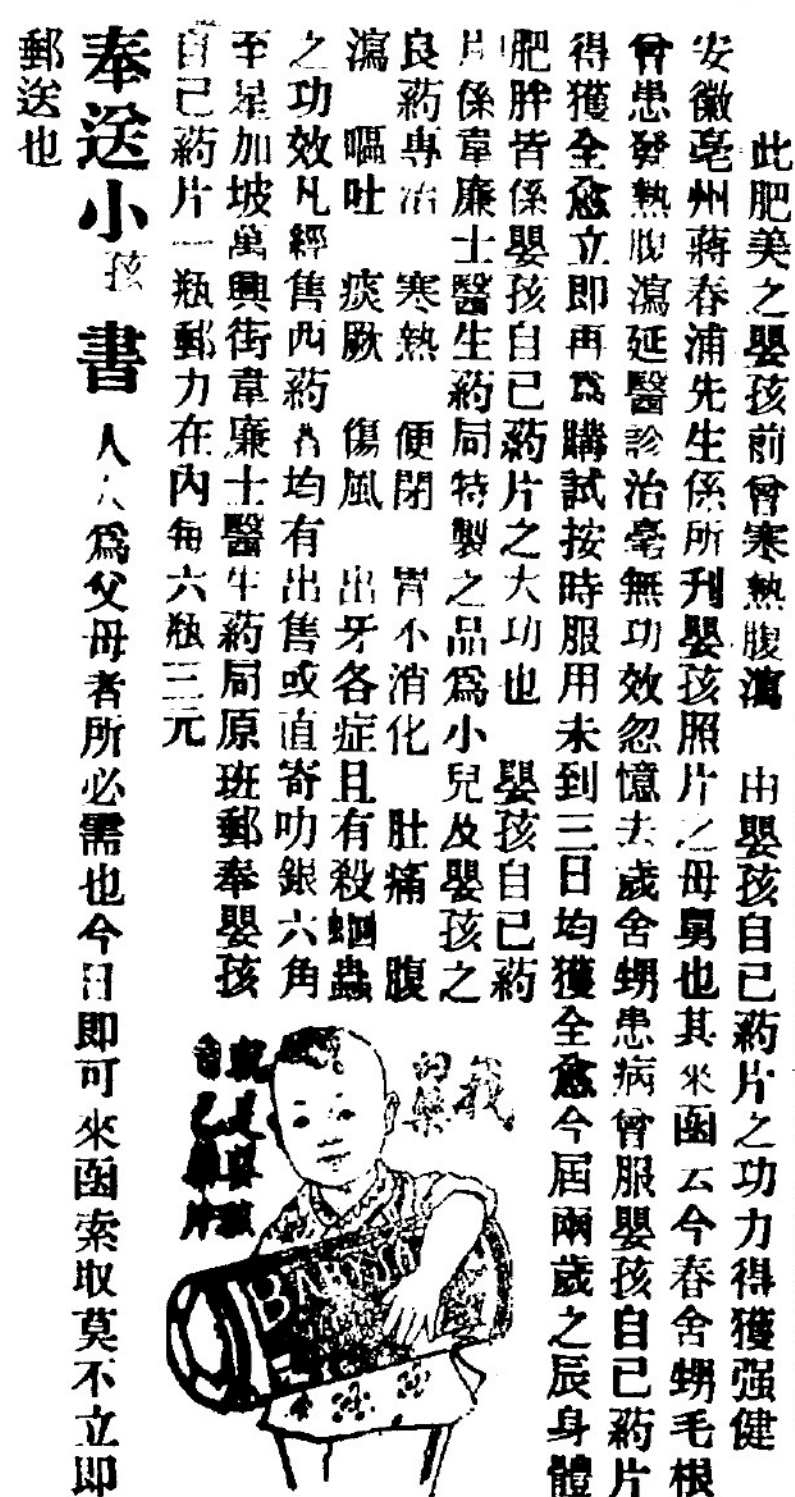 此肥美之嬰孩前曾寒熱腹瀉 由嬰孩自己药片之功力得獲强健
安徽亳州蔣春浦先生係所刋嬰孩照片之母舅也其來函云今春舍甥毛根
曾患發熱腹瀉延醫診治毫無功效忽憶去歲舍甥患病曾服嬰孩自己药片
得獲全愈立即再爲購試按時服用未到三日均獲全愈今屆兩歲之辰身體
肥胖皆係嬰孩自己药片之大功也 嬰孩自已药
片係韋廉士醫生药局特製之品爲小兒及嬰孩之
良药專治 寒熱 便閉 胃不消化 肚痛 腹
瀉 嘔吐 痰厥 傷風 出牙各症且有殺蛔蟲
之功效凡經售西药者均有出售或直寄叻銀六角
至星加坡萬興街韋廉士醫生药局原班郵奉嬰孩
自己药片一瓶郵力在內每六瓶三元
奉送小孩書 人人爲父母者所必需也今日即可來函索取莫不立即
郵送也
我
的藥
就是嬰孩
自己藥片
BABY'S